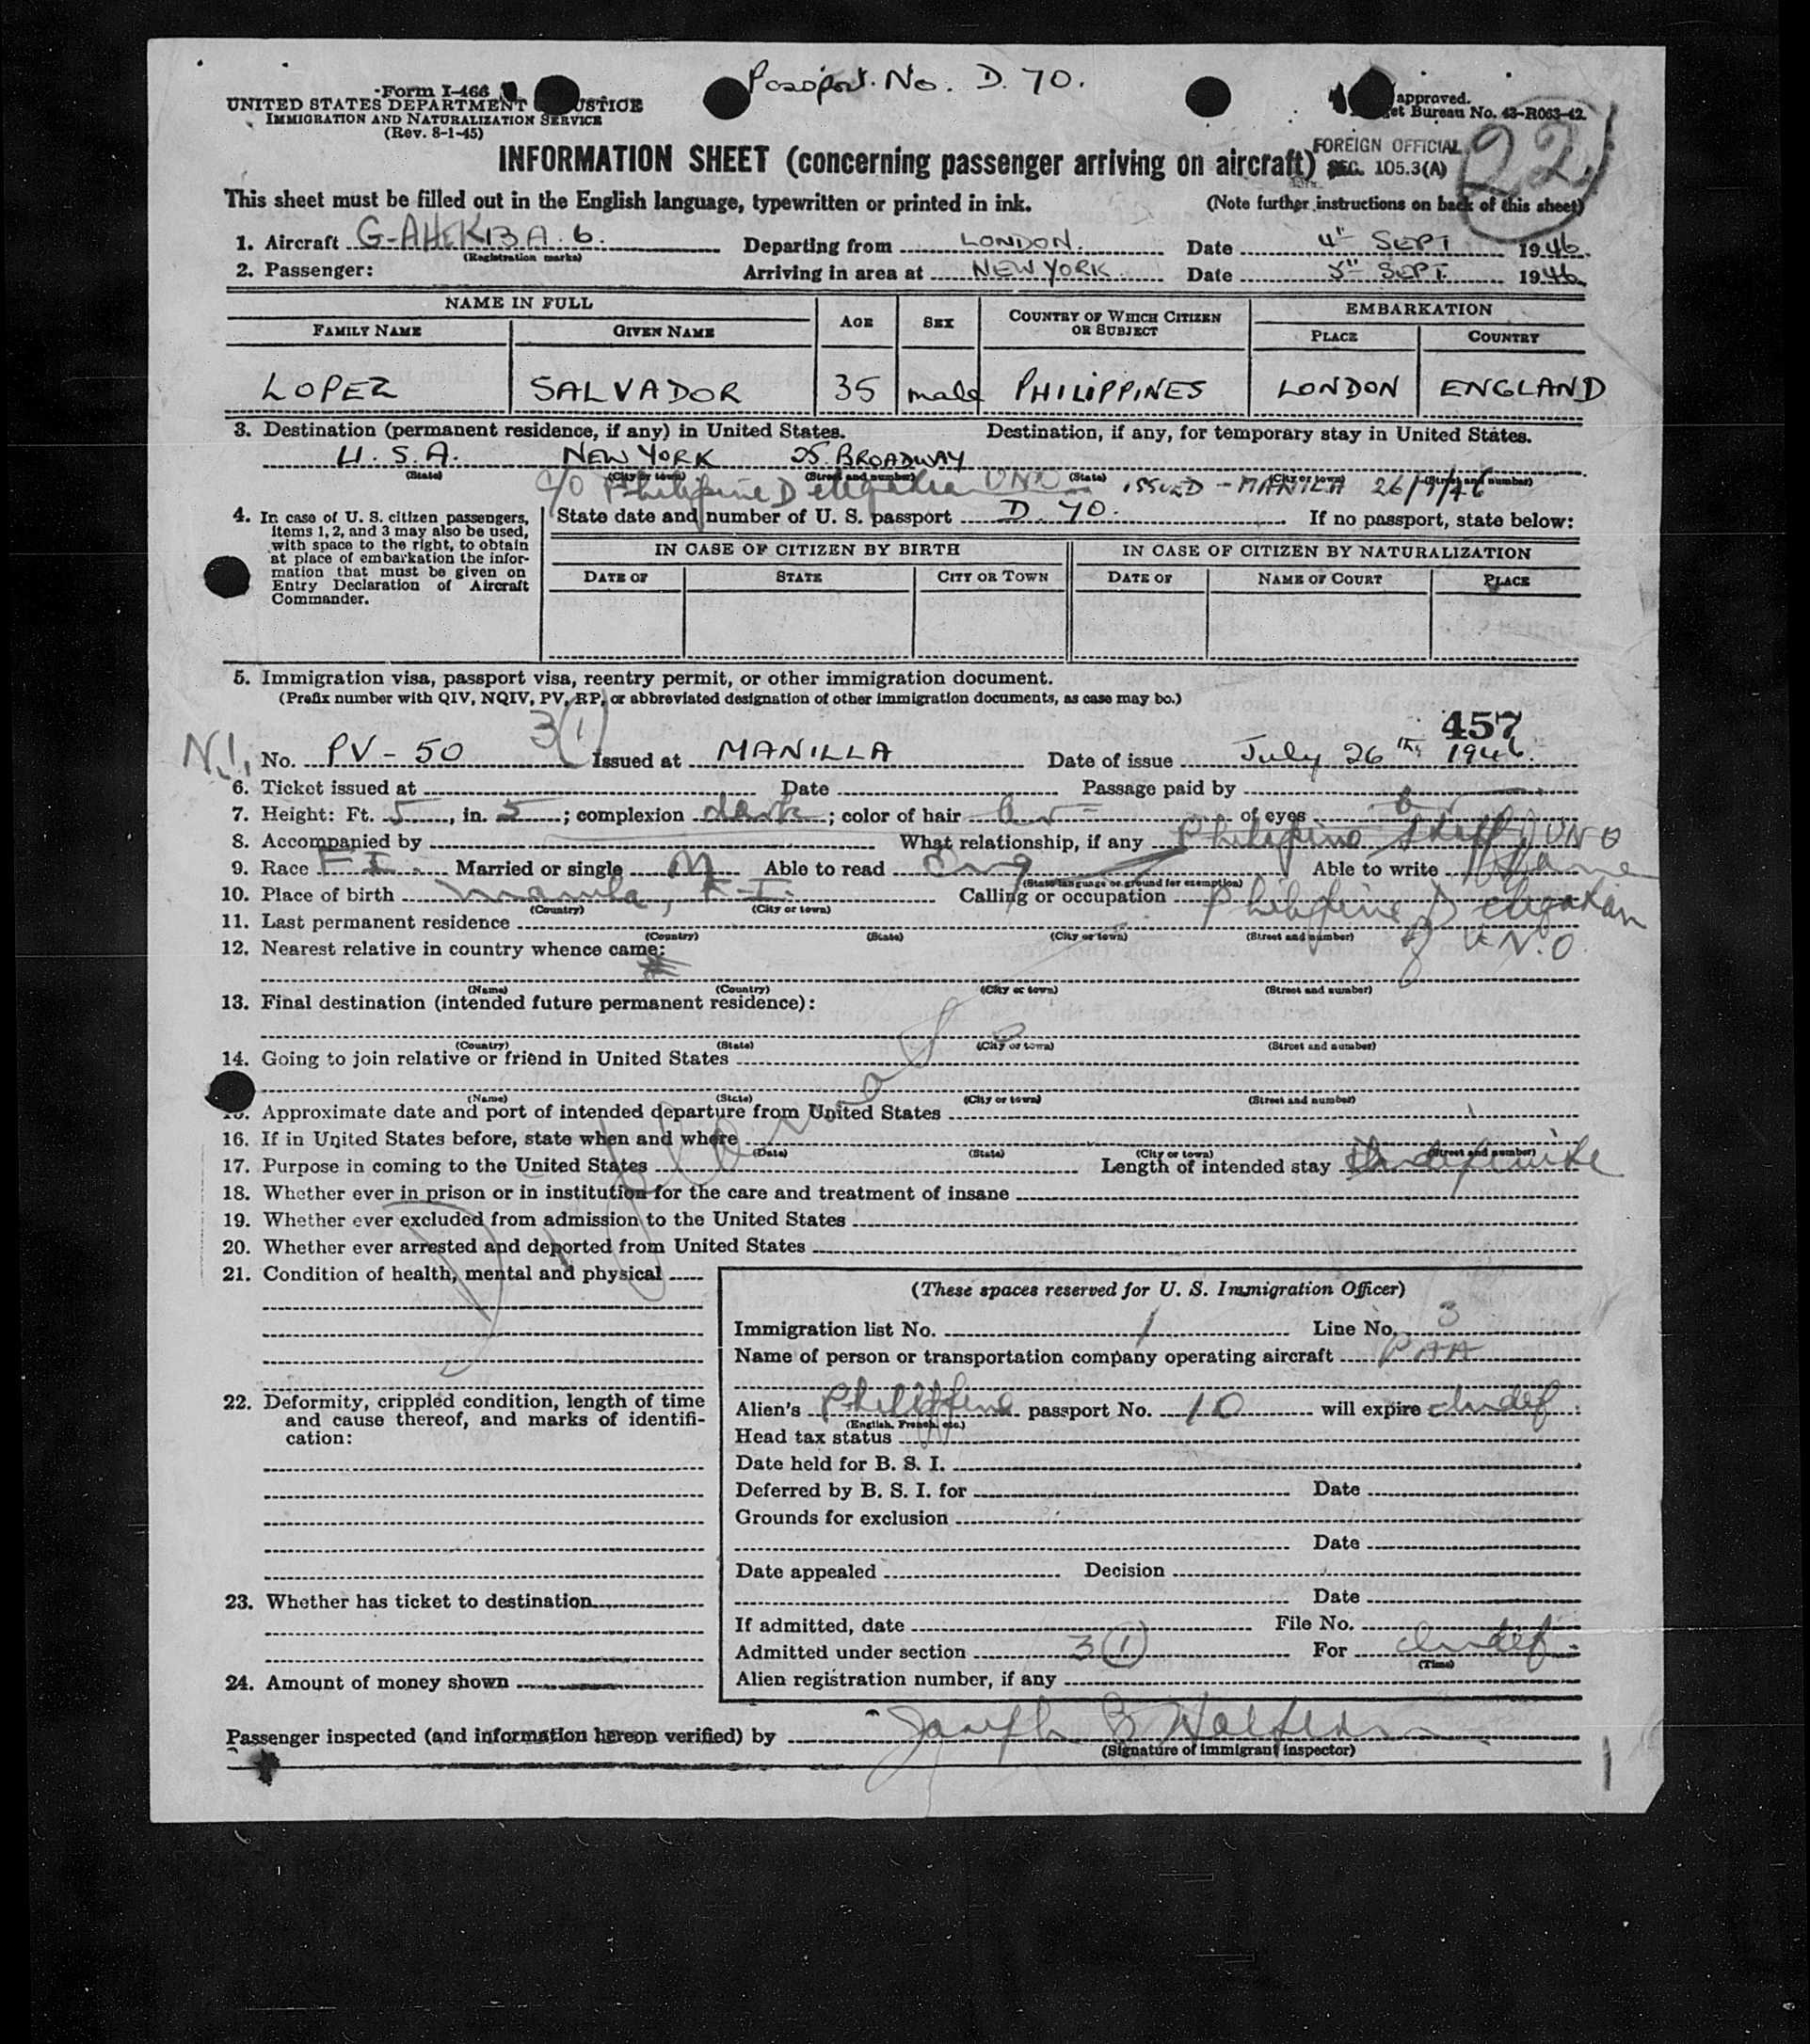 Passport. No. D. 70.
Form I-466
UNITED STATES DEPARTMENT JUSTICE
IMMIGRATION AND NATURALIZATION SERVICE
(Rev. 8-1-45)
approved.
et Bureau No. 43-R063-42.
FOREIGN OFFICIAL
SEC. 105.3(A)
22
INFORMATION SHEET (concerning passenger arriving on aircraft)
This sheet must be filled out in the English language, typewritten or printed in ink. (Note further instructions on back of this sheet)
1. Aircraft G-AHEK BA. 6. Departing from LONDON. Date 4th SEPT 1946.
(Registration marks)
2. Passenger: Arriving in area at NEW YORK. Date 5th SEPT. 1946
NAME IN FULL AGE SEX COUNTRY OF WHICH CITIZEN OR SUBJECT EMBARKATION
FAMILY NAME GIVEN NAME PLACE COUNTRY
LOPEZ SALVADOR 35 male PHILIPPINES LONDON ENGLAND
3. Destination (permanent residence, if any) in United States. Destination, if any, for temporary stay in United States.
U.S.A. NEW YORK 25 BROADWAY
(State) (City or town) (Street and number) (State) (City or town) (Street and number)
C/O Philippine Delegation UNO ISSUED - MANILA 26/7/46
4. In case of U. S. citizen passengers, items 1, 2, and 3 may also be used, with space to the right, to obtain at place of embarkation the information that must be given on Entry Declaration of Aircraft Commander.
State date and number of U. S. passport D. 70. If no passport, state below:
IN CASE OF CITIZEN BY BIRTH IN CASE OF CITIZEN BY NATURALIZATION
DATE OF STATE CITY OR TOWN DATE OF NAME OF COURT PLACE
5. Immigration visa, passport visa, reentry permit, or other immigration document.
(Prefix number with QIV, NQIV, PV, RP, or abbreviated designation of other immigration documents, as case may be.)
3(1) 457
No. PV-50 Issued at MANILLA Date of issue July 26th, 1946.
6. Ticket issued at Date Passage paid by
7. Height: Ft. 5, in. 5; complexion dark; color of hair br of eyes b
8. Accompanied by What relationship, if any Philipino Staff UNO
9. Race F I. Married or single M Able to read Eng Able to write Same
(State language or ground for exemption)
10. Place of birth Manila, P.I. Calling or occupation Philippine Delegation
(Country) (City or town)
11. Last permanent residence U.N.O.
(Country) (State) (City or town) (Street and number)
12. Nearest relative in country whence came:
(Name) (Country) (City or town) (Street and number)
13. Final destination (intended future permanent residence):
(Country) (State) (City or town) (Street and number)
14. Going to join relative or friend in United States
(Name) (State) (City or town) (Street and number)
15. Approximate date and port of intended departure from United States
16. If in United States before, state when and where
(Date) (State) (City or town) (Street and number)
17. Purpose in coming to the United States Length of intended stay Indefinite
18. Whether ever in prison or in institution for the care and treatment of insane
19. Whether ever excluded from admission to the United States
20. Whether ever arrested and deported from United States
Diplomat
21. Condition of health, mental and physical
22. Deformity, crippled condition, length of time and cause thereof, and marks of identification:
23. Whether has ticket to destination
24. Amount of money shown
(These spaces reserved for U. S. Immigration Officer)
Immigration list No. 1 Line No. 3
Name of person or transportation company operating aircraft PAA
Alien's Philippine passport No. 10 will expire Indef
(English, French, etc.)
Head tax status
Date held for B. S. I.
Deferred by B. S. I. for Date
Grounds for exclusion
Date
Date appealed Decision
Date
If admitted, date File No.
Admitted under section 3(1) For Indef.
(Time)
Alien registration number, if any
Passenger inspected (and information hereon verified) by Joseph B
(Signature of immigrant inspector)